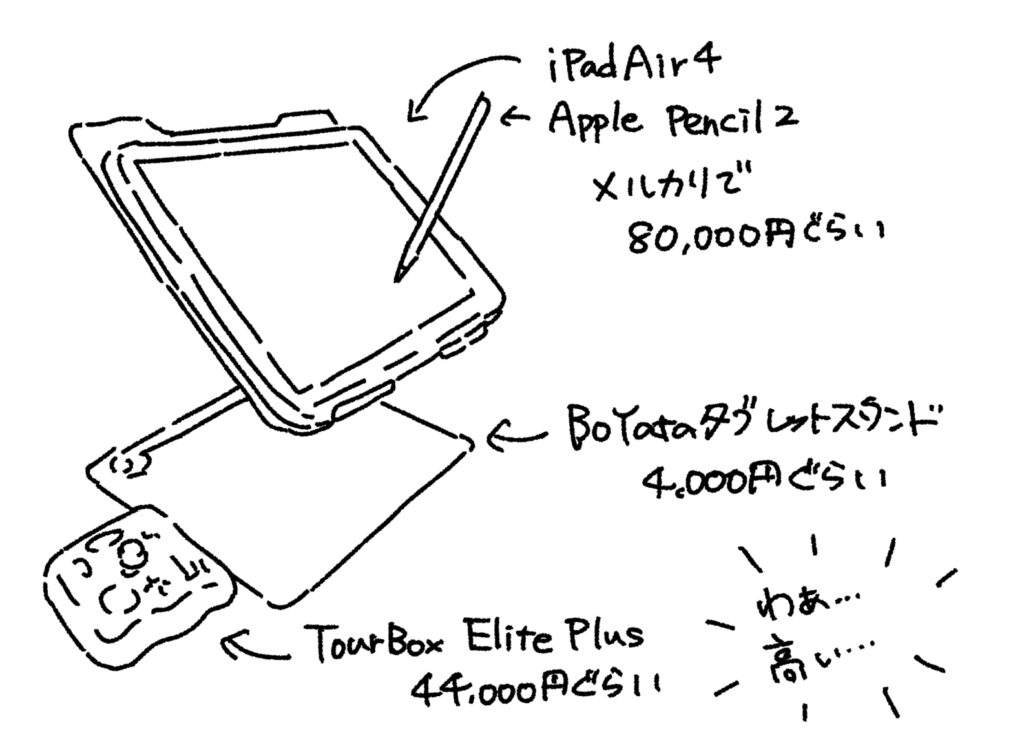 iPad Air 4
Apple Pencil 2
メルカリで
80,000円ぐらい
BoYataタブレットスタンド
4,000円ぐらい
TourBox Elite Plus
44,000円ぐらい
わぁ…
高い…